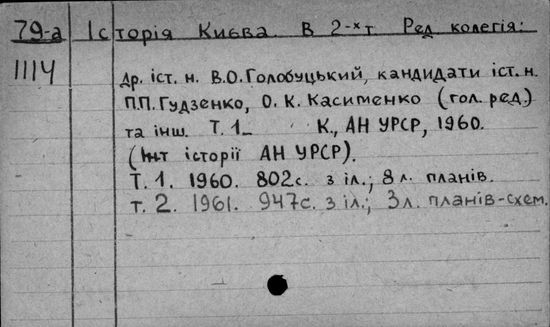 79-а Історія Києва. В 2-х т. Ред. колегія:
1114
Др. іст. н. В.О. Голобуцький, кандидати іст. н.
П.П. Гудзенко, О. К. Касименко (гол. ред.)
та інш. Т. 1_ К., АН УРСР, 1960.
(Ін-т історії АН УРСР).
Т. 1. 1960. 802с. з іл.; 8 л. планів.
т. 2. 1961. 947с. з іл.; 3л. планів-схем.